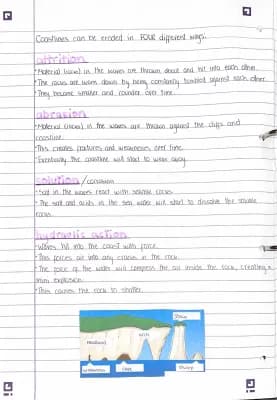 Coastlines can be eroded in FOUR different ways.
attrition
• Material (rocks) in the waves are thrown about and hit into each other.
• The rocks are worn down by being constantly tumbled against each other.
• They become smaller and rounder over time.
abrasion
• Material (rocks) in the waves are thrown against the cliffs and
coastline.
• This creates features and weaknesses over time.
• Eventually the coastline will start to wear away.
solution / corrosion
• Salt in the waves react with soluble rocks.
• The salt and acids in the sea water will start to dissolve the soluble
rocks.
hydraulic action
• Waves hit into the coast with force.
• This forces air into any cracks in the rock.
• The force of the water will compress the air inside the rock, creating a
mini explosion.
• This causes the rock to shatter.
Stack
Arch
Headland
Cave
Stump